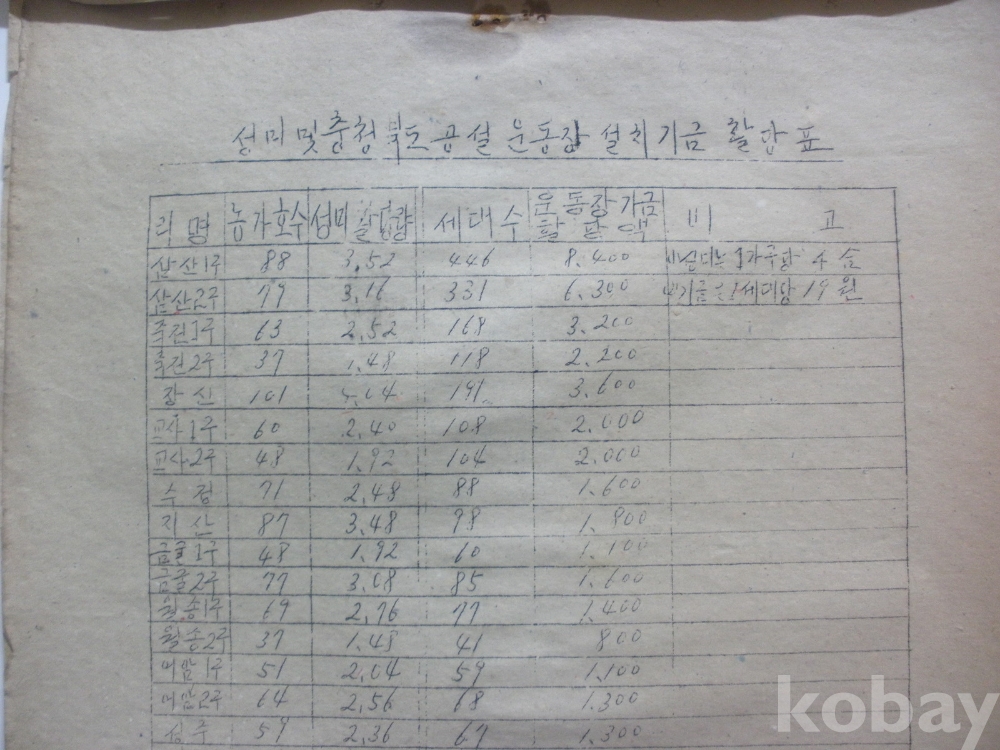 성미 및 충청북도 공설 운동장 설치기금 활당표
리명 농가호수 성미 활당량 세대수 운동장기금 활당액 비고
삼산1구 88 3,52 446 8.400
삼산2구 79 3,16 331 6.300 세대당 19원
죽전1구 63 2,52 168 3.200
죽전2구 37 1,48 118 2.200
장신 101 4,04 191 3.600
교사1구 60 2,40 108 2.000
교사2구 48 1,92 104 2.000
수정 71 2,48 88 1.600
지산 87 3,48 98 1.800
금굴1구 48 1,92 60 1.100
금굴2구 77 3,08 85 1.600
월송1구 69 2,76 77 1.400
월송2구 37 1.48 41 800
어암1구 51 2,04 59 1.100
어암2구 64 2,56 68 1.300
성주 59 2,36 67 1.300
kobay